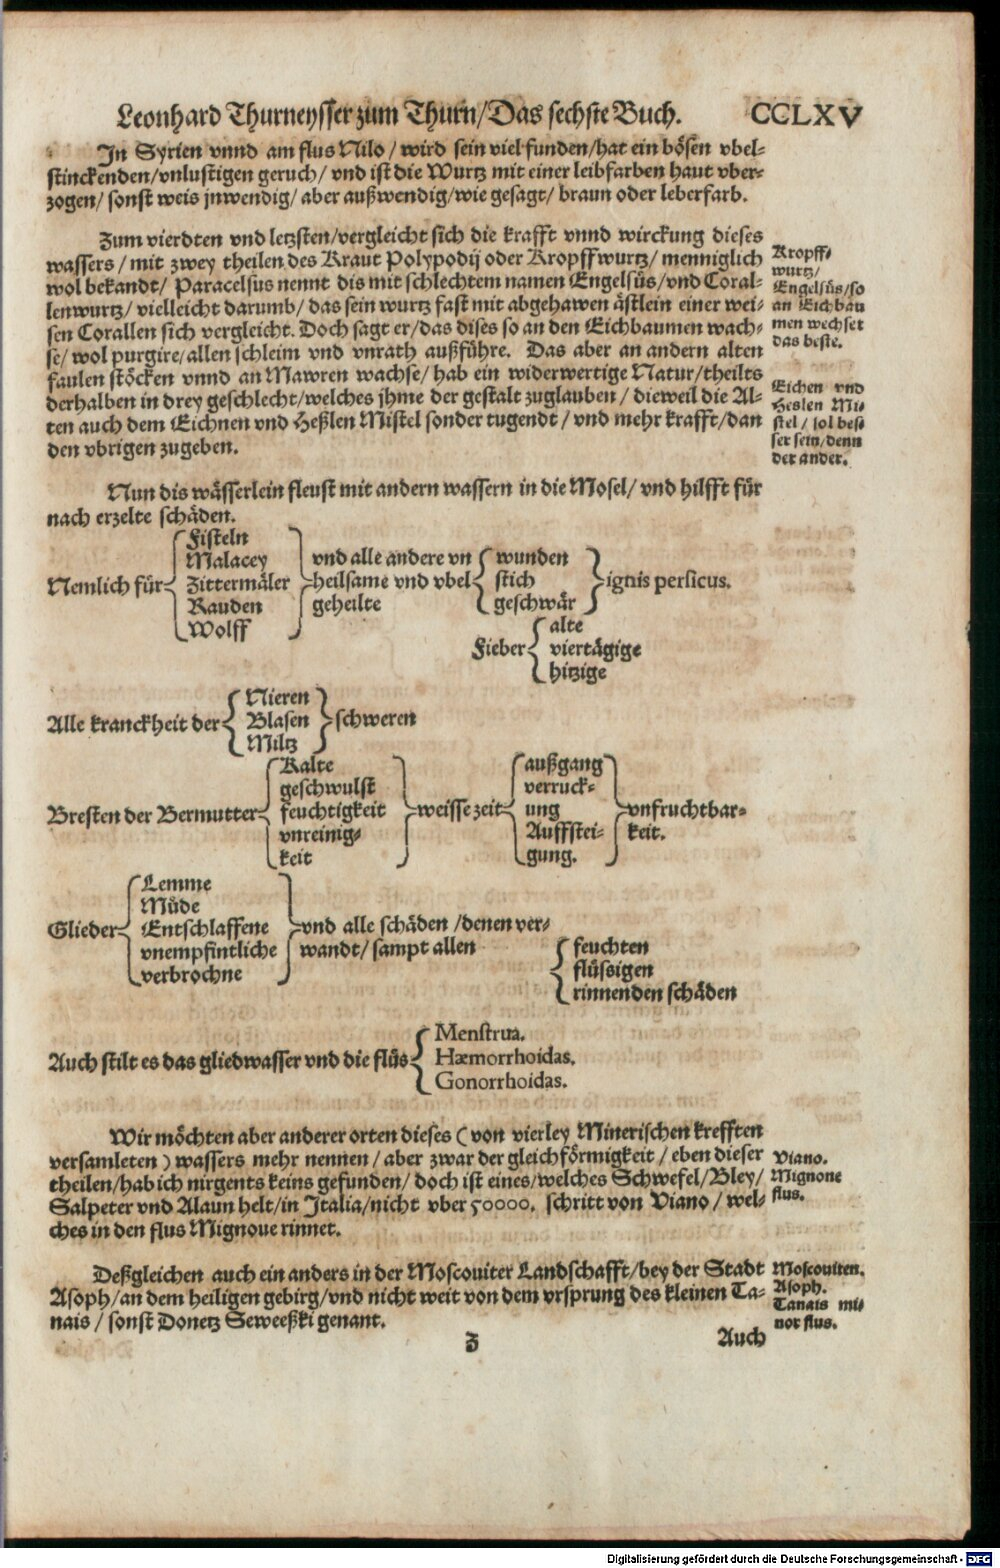 Leonhard Thurneysser zum Thurn/Das sechste Buch. CCLXV
In Syrien vnnd am flus Nilo/wird sein viel funden/hat ein bösen vbel-
stinckenden/vnlustigen geruch/vnd ist die Wurtz mit einer leibfarben haut vber-
zogen/sonst weis jnwendig/aber außwendig/wie gesagt/braun oder leberfarb.
Zum vierdten vnd letzsten/vergleicht sich die krafft vnnd wirckung dieses
wassers/mit zwey theilen des Kraut Polypodij oder Kropffwurtz/menniglich
wol bekandt/Paracelsus nennt dis mit schlechtem namen Engelsüs/vnd Coral-
lenwurtz/vielleicht darumb/das sein wurtz fast mit abgehawen ästlein einer wei-
sen Corallen sich vergleicht. Doch sagt er/das dises so an den Eichbaumen wach-
se/wol purgire/allen schleim vnd vnrath außführe. Das aber an andern alten
faulen stöcken vnnd an Mawren wachse/hab ein widerwertige Natur/theilts
derhalben in drey geschlecht/welches jhme der gestalt zuglauben/dieweil die Al-
ten auch dem Eichnen vnd Heßlen Mistel sonder tugendt/vnd mehr krafft/dan
den vbrigen zugeben.
Kropff-
wurtz/
Engelsüs/so
an Eichbau
men wechset
das beste.
Eichen vnd
Heslen Mi-
stel/sol bes-
ser sein/denn
der ander.
Nun dis wässerlein fleust mit andern wassern in die Mosel/vnd hilfft für
nach erzelte schäden.
Nemlich für
Fisteln
Malacey
Zittermäler
Rauden
Wolff
vnd alle andere vn
heilsame vnd vbel
geheilte
wunden
stich
geschwär
ignis persicus.
Fieber
alte
viertägige
hitzige
Alle kranckheit der
Nieren
Blasen
Miltz
schweren
Bresten der Bermutter
Kalte
geschwulst
feuchtigkeit
vnreinig-
keit
weisse zeit
außgang
verruck-
ung
Auffstei-
gung.
vnfruchtbar-
keit.
Glieder
Lemme
Müde
Entschlaffene
vnempfintliche
verbrochne
vnd alle schäden/denen ver-
wandt/sampt allen
feuchten
flüssigen
rinnenden schäden
Auch stilt es das gliedwasser vnd die flüs
Menstrua.
Hæmorrhoidas.
Gonorrhoidas.
Wir möchten aber anderer orten dieses (von vierley Minerischen krefften
versamleten) wassers mehr nennen/aber zwar der gleichförmigkeit/eben dieser
theilen/hab ich nirgents keins gefunden/doch ist eines/welches Schwefel/Bley/
Salpeter vnd Alaun helt/in Italia/nicht vber 50000. schritt von Viano/wel-
ches in den flus Mignoue rinnet.
Viano.
Mignone
flus.
Deßgleichen auch ein anders in der Moscouiter Landschafft/bey der Stadt
Asoph/an dem heiligen gebirg/vnd nicht weit von dem vrsprung des kleinen Ta-
nais/sonst Donetz Seweeßki genant.
Moscouiten.
Asoph.
Tanais mi-
nor flus.
Z
Auch
Digitalisierung gefördert durch die Deutsche Forschungsgemeinschaft - DFG